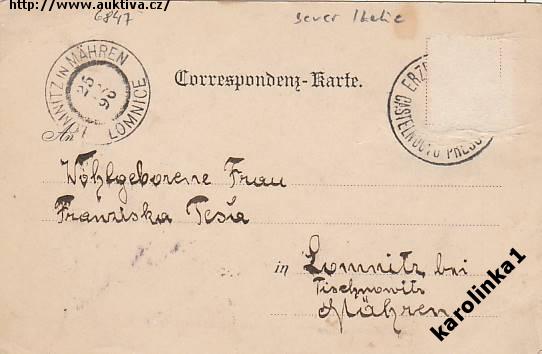 http://www.auktiva.cz/
6847
sever Italie
LOMNITZ IN MÄHREN
25
96
LOMNICE
ERZ
CASTELNUOVO PRESSO
Correspondenz-Karte.
An
Wohlgeborene Frau
Franziska Tesla
in Lomnitz bei
Tischnowitz
Mähren
karolinka1